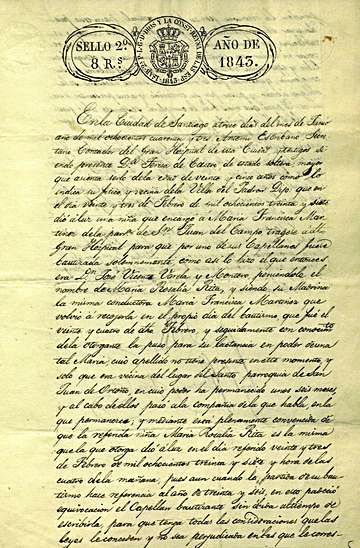 SELLO 2º
8 Rs.
AÑO DE
1843.
En la Ciudad de Santiago a trece días del mes de
año de mil ochocientos cuarenta y tres Antemi Escribano
Contador del Gran Hospital de esta Ciudad y testigos
siendo presente Dª Teresa de Castro de estado soltera, mayor
que asienta sede de la edad de veinte y cinco años como lo
indica su físico y vecina de la Villa del Padrón Dijo: que en
el día veinte y tres de Febrero de mil ochocientos treinta y siete
dió a luz una niña que encargó a María Francisca Mar
tinez de la parrª de Sn Juan del Campo trajese al
Gran Hospital para que por uno de sus Capellanes fuese
bautizada solemnemente como asi lo hizo el que entonces
era Dn José Vicente Varela y Montero, poniendole el
nombre de María Rosalía Rita, y siendo su Madrina
la misma conductora María Francisca Martinez que
volvió a recojerla en el propio día del bautismo que fué el
veinte y cuatro de dho Febrero, y seguidamente con consentº
de la otorgante la puso para su lactancia en poder de una
tal María, cuio apellido no tiene presente en este momento y
solo que era vecina del lugar del Santo, parroquia de San
Juan de Ortoño, en cuio poder ha permanecido unos seis meses
y al cabo de ellos pasó a la compañia de la que habla, en la
que permanece; y mediante está plenamente convencida de
que la referida niña María Rosalía Rita es la misma
que la que otorga dió a luz en el día referido veinte y tres
de Febrero de mil ochocientos treinta y siete y hora de las
cuatro de la mañana, pues aun cuando la partida de su bau
tismo hace referencia al año de treinta y seis, en esta padeció
equivocacion el Capellan bautizante sin duda al tiempo de
escribirla, para que tenga todas las consideraciones que las
leyes le conceden y no sea perjudicada en las que la corres